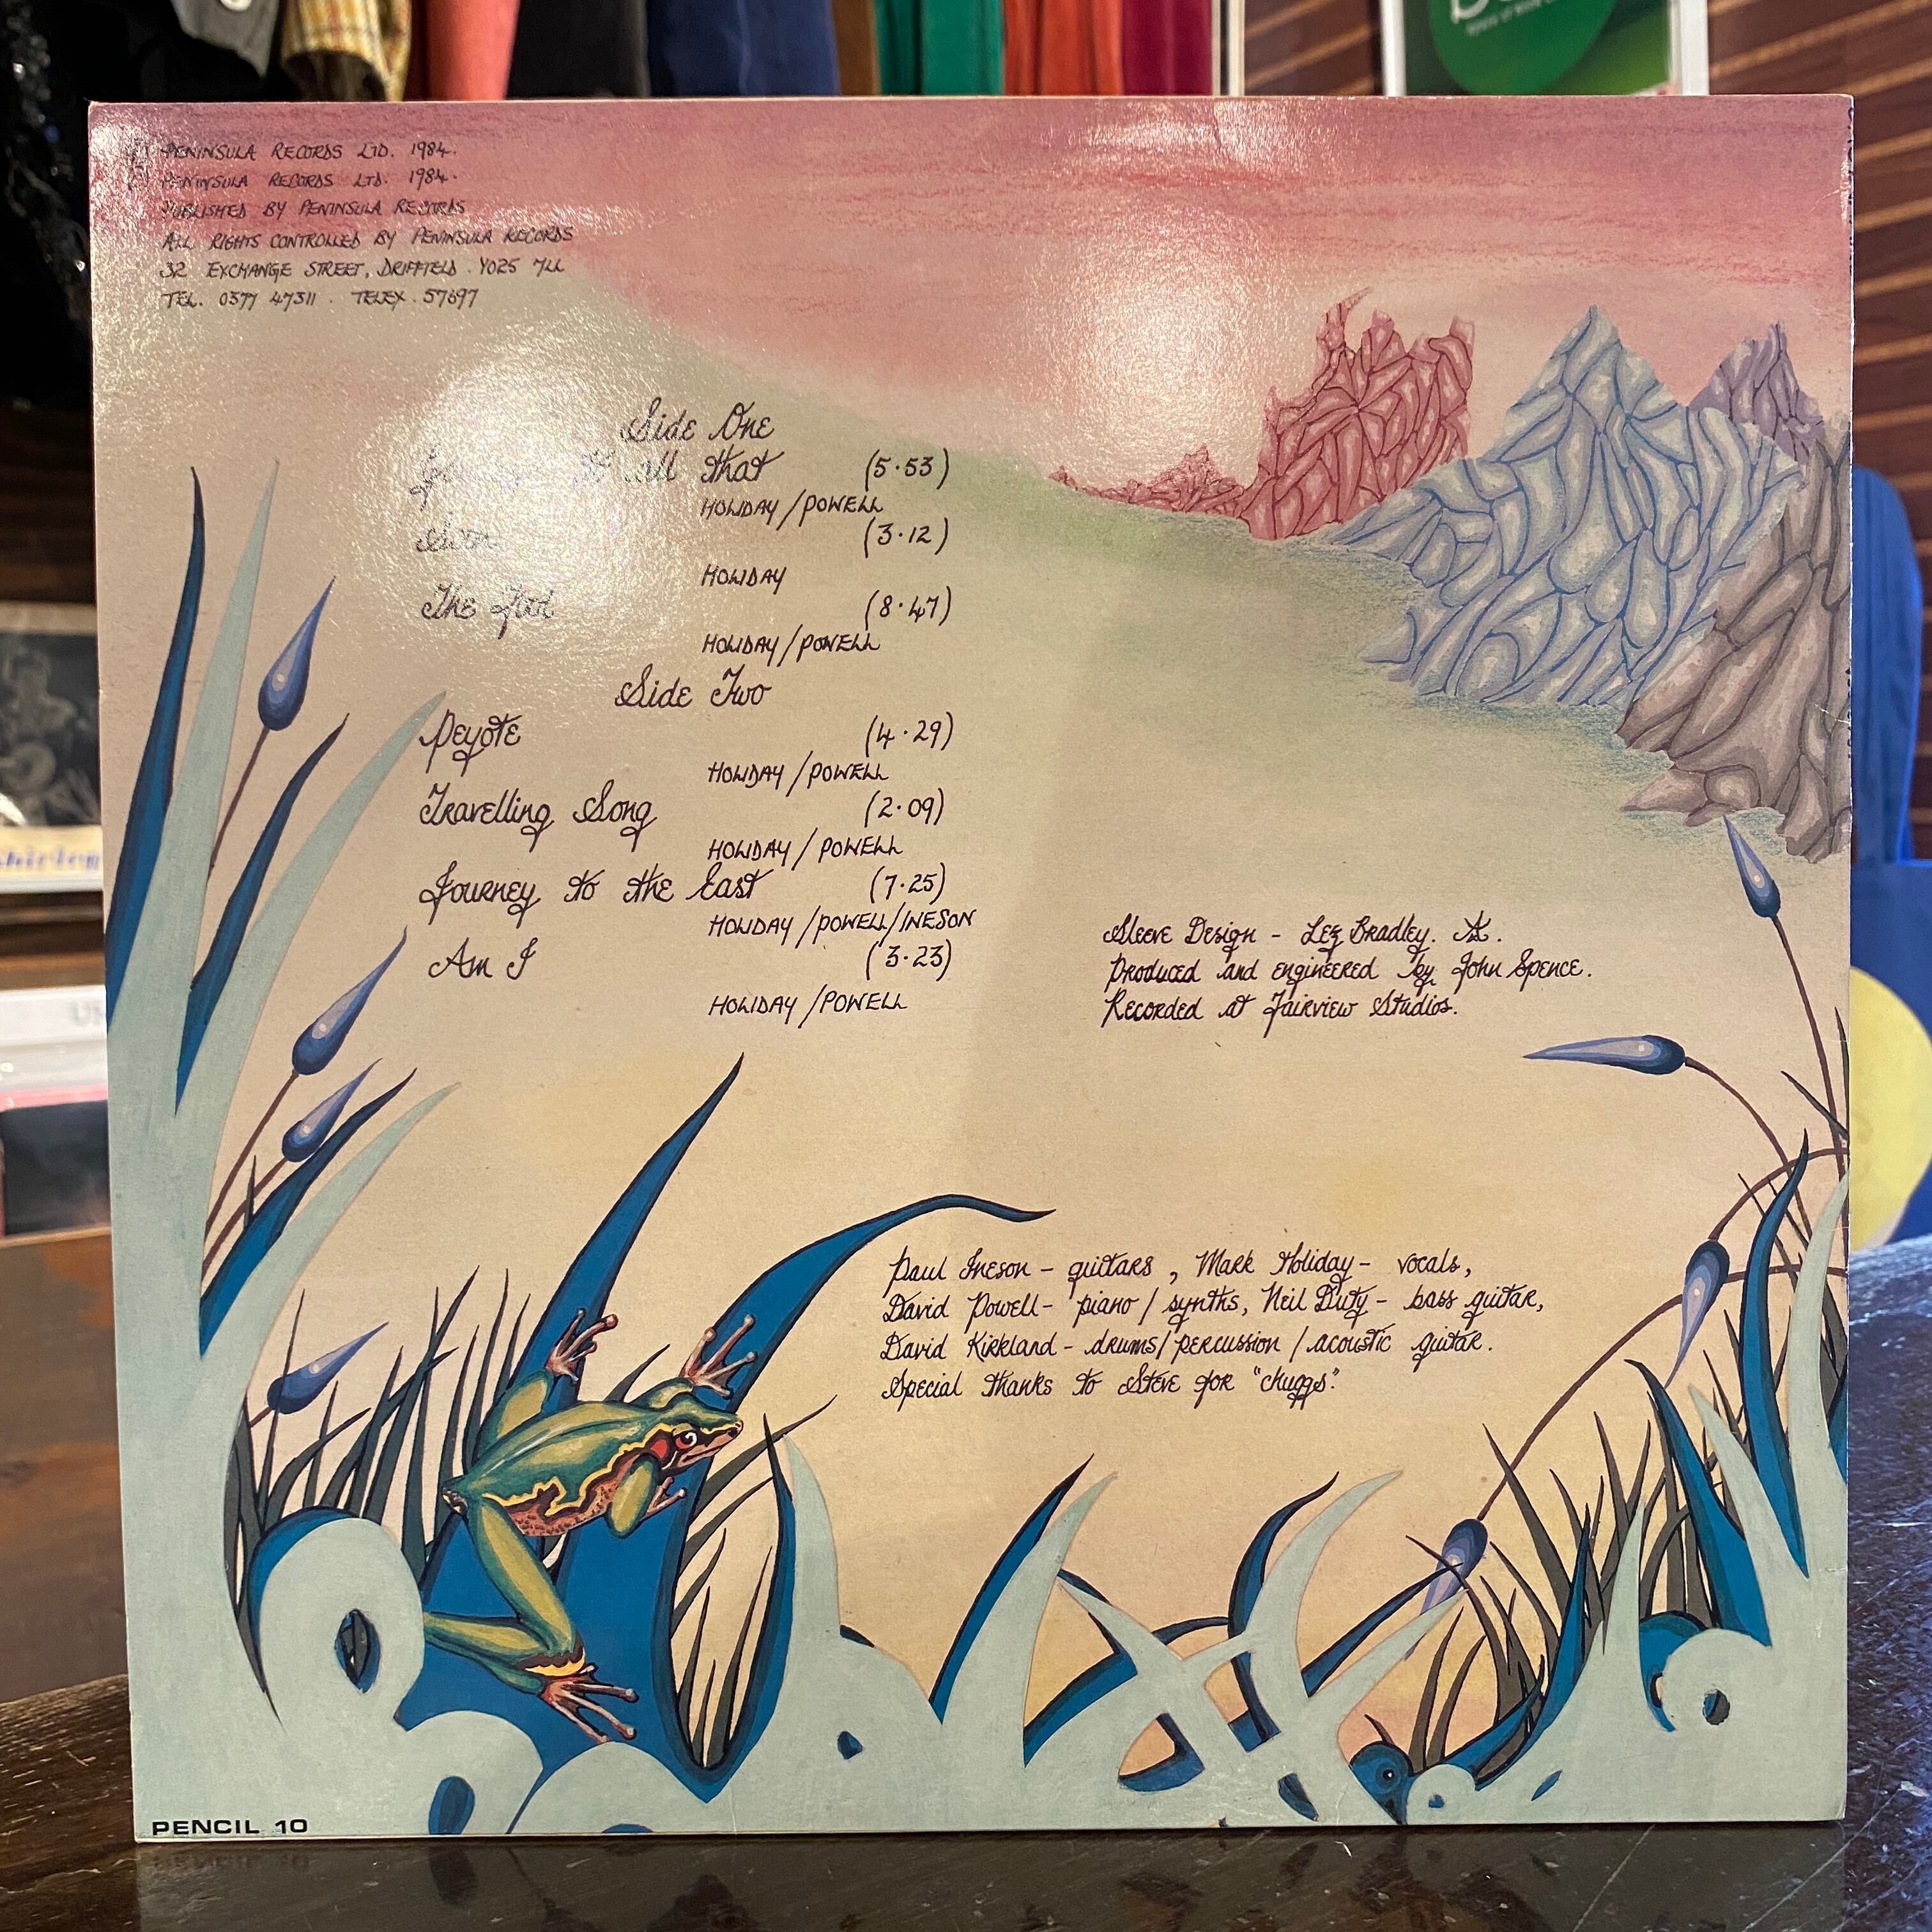 Ⓟ PENINSULA RECORDS LTD. 1984.
© PENINSULA RECORDS LTD. 1984.
PUBLISHED BY PENINSULA RECORDS
ALL RIGHTS CONTROLLED BY PENINSULA RECORDS
32 EXCHANGE STREET, DRIFFIELD. YO25 7LL
TEL. 0377 47311. TELEX. 57697
Side One
all that (5·53)
HOLIDAY/POWELL
(3·12)
HOLIDAY
The (8·47)
HOLIDAY/POWELL
Side Two
Peyote (4·29)
HOLIDAY/POWELL
Travelling Song (2·09)
HOLIDAY/POWELL
Journey to the East (7·25)
HOLIDAY/POWELL/INESON
Am I (3·23)
HOLIDAY/POWELL
Sleeve Design - Lez Bradley.
Produced and engineered by John Spence.
Recorded at Fairview Studios.
Paul Ineson - guitars, Mark Holiday - vocals,
David Powell - piano/synths, Neil Duty - bass guitar,
David Kirkland - drums/percussion/acoustic guitar.
Special thanks to Steve for "chuggs".
PENCIL 10